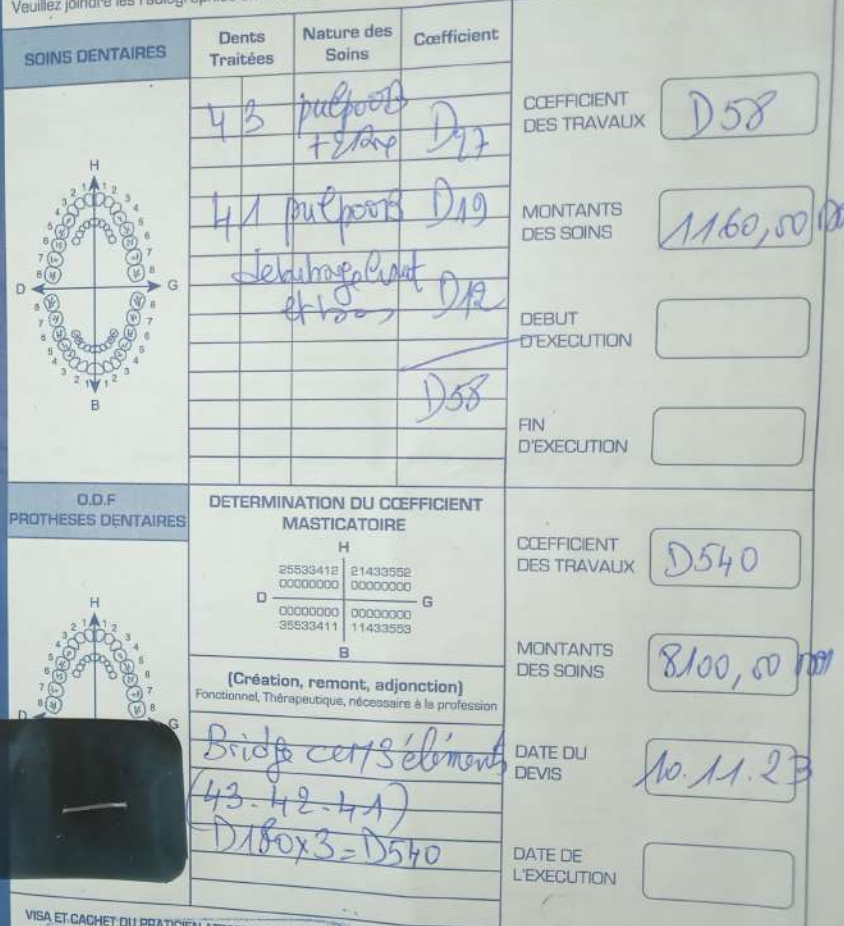 Veuillez joindre les
SOINS DENTAIRES
Dents Traitées
Nature des Soins
Cœfficient
43 pulpoo
D
41 pulpoo D19
et bas D12
D58
H
D G
B
CŒFFICIENT DES TRAVAUX D58
MONTANTS DES SOINS 1160,00
DEBUT D'EXECUTION
FIN D'EXECUTION
O.D.F
PROTHESES DENTAIRES
H
D G
DETERMINATION DU CŒFFICIENT MASTICATOIRE
H
25533412 21433552
00000000 00000000
D G
00000000 00000000
35533411 11433553
B
(Création, remont, adjonction)
Fonctionnel, Thérapeutique, nécessaire à la profession
Bridge cem 3 éléments
(43-42-41)
D180x3=D540
CŒFFICIENT DES TRAVAUX D540
MONTANTS DES SOINS 8100,00
DATE DU DEVIS 10.11.23
DATE DE L'EXECUTION
VISA ET CACHET DU PRATICIEN